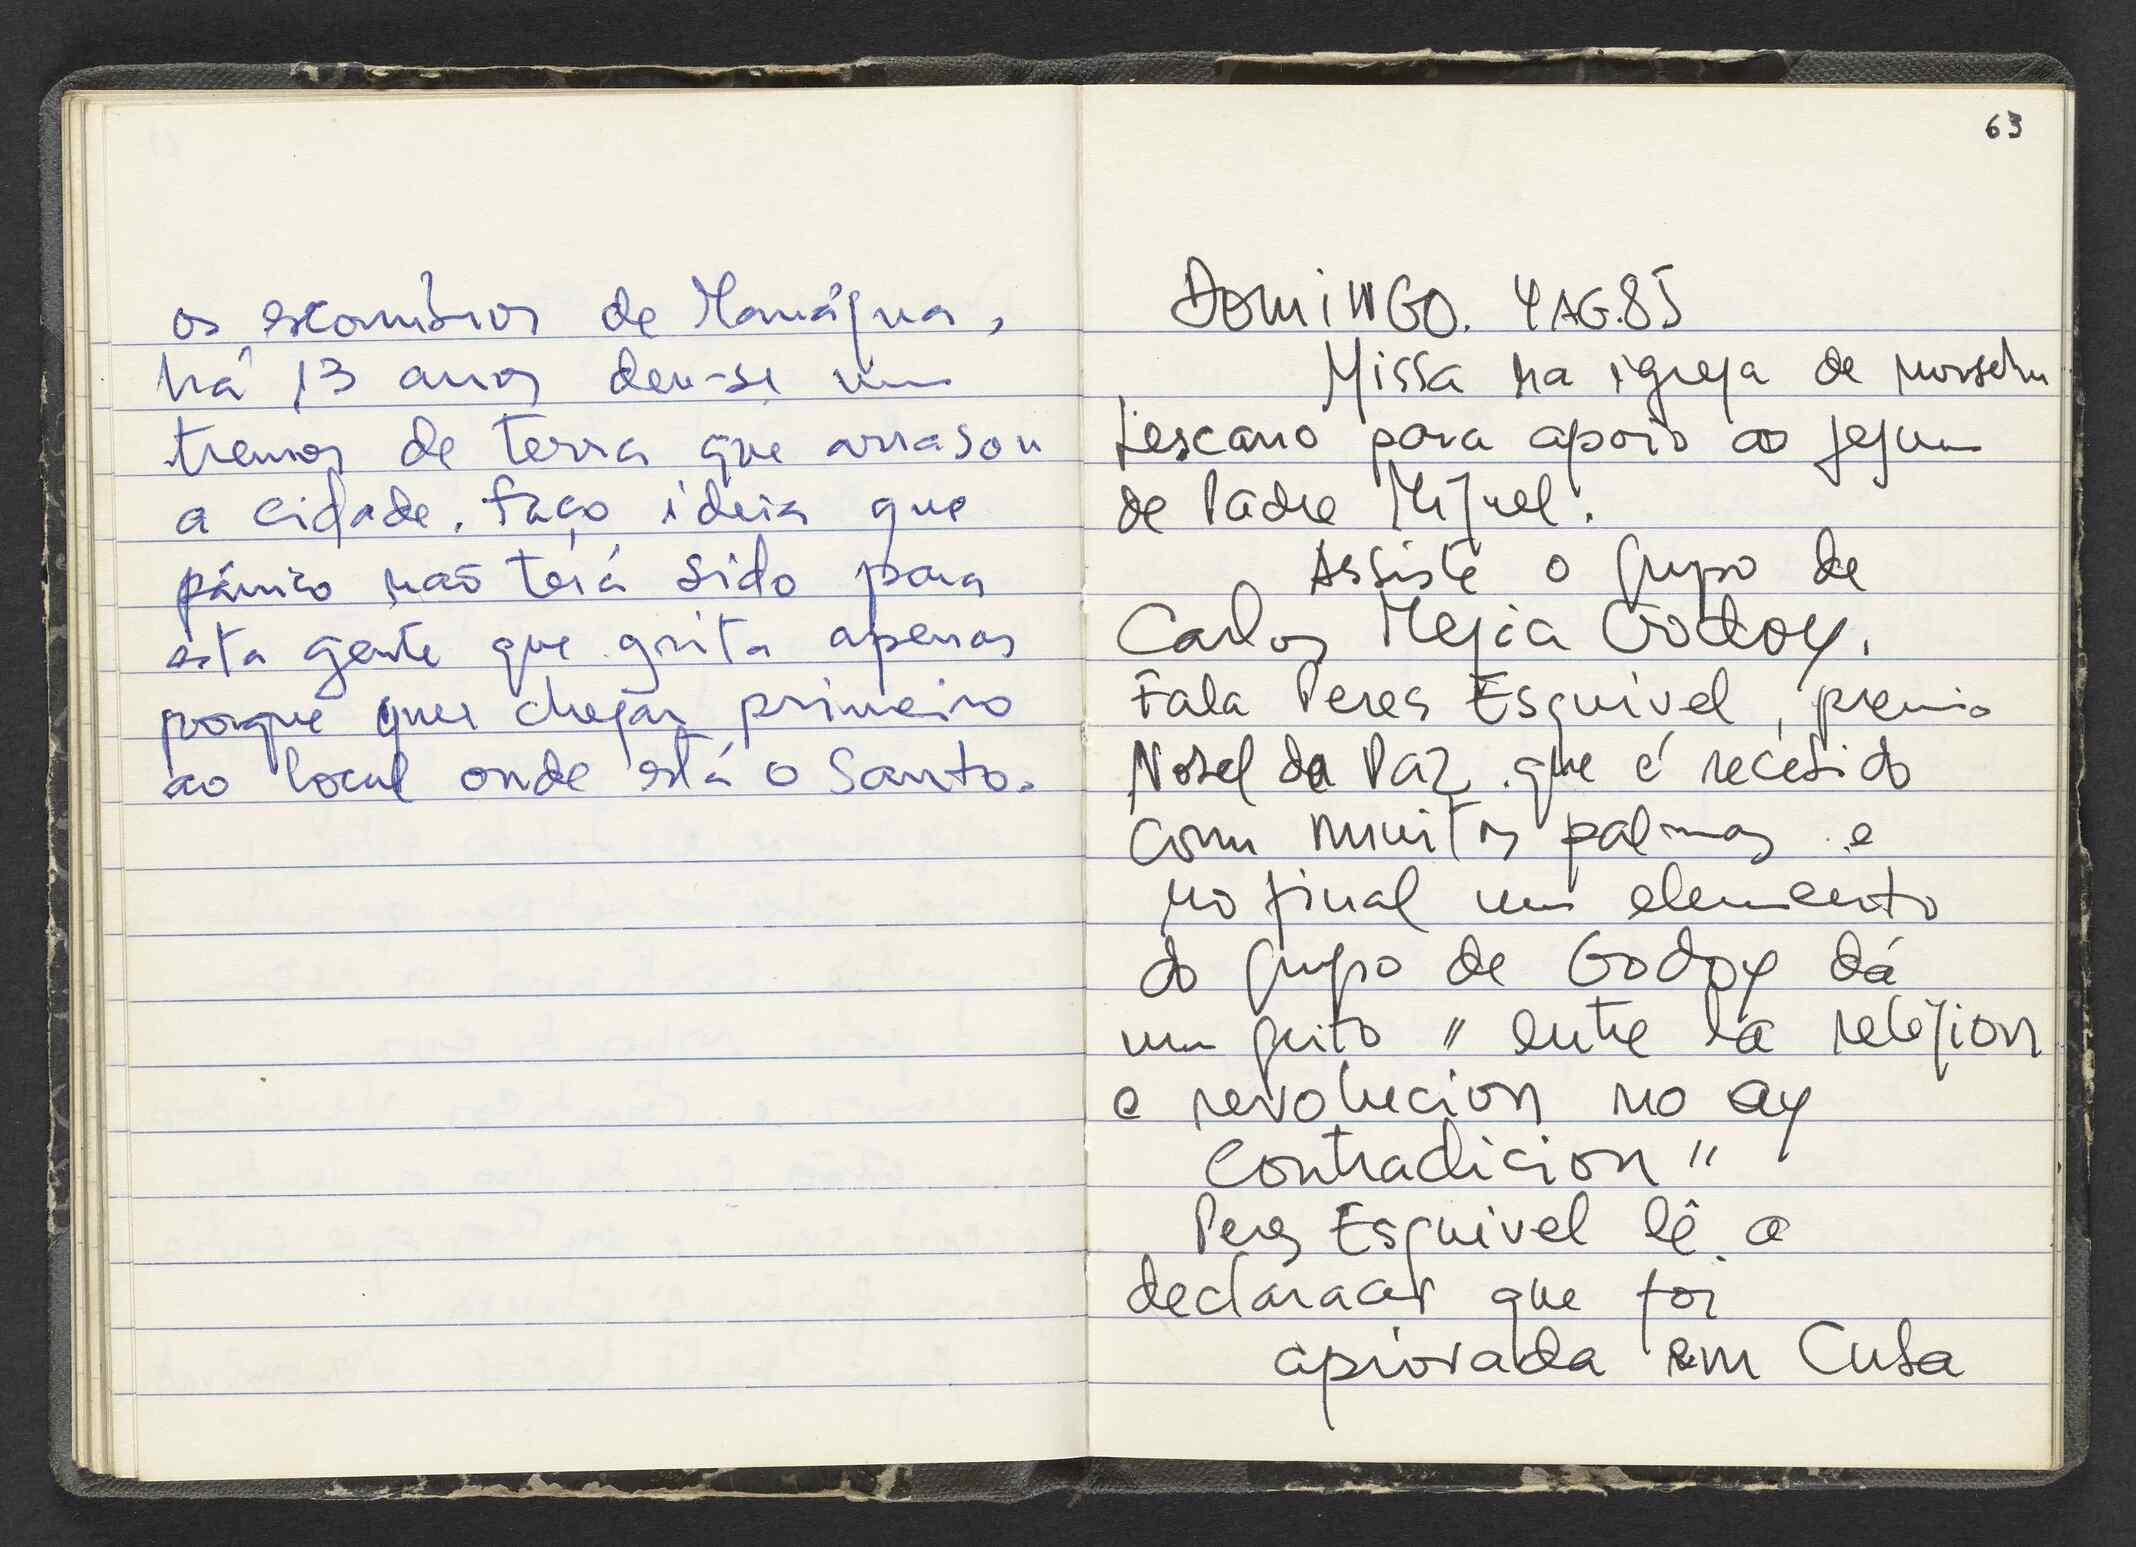 os escombros de Manágua,
há 13 anos deu-se um
tremor de terra que arrasou
a cidade. Faço ideia que
pânico não terá sido para
esta gente que grita apenas
porque quer chegar primeiro
ao local onde está o Santo.
63
DOMINGO. 4 AG. 85
Missa na igreja de
Lescano para apoio ao jejum
de Padre Miguel.
Assiste o grupo de
Carlos Mejia Godoy.
Fala Peres Esquivel, premio
Nobel da Paz que é recebido
com muitas palmas e
no final um elemento
do grupo de Godoy dá
um grito "entre la religion
e revolucion no ay
contradicion"
Peres Esquivel lê a
que foi
aprovada em Cuba